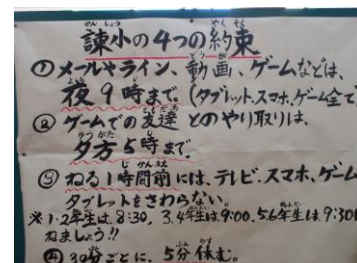 諫小の4つの約束
①メールやライン、動画、ゲームなどは、
夜9時まで。(タブレット、スマホ、ゲーム全て
②ゲームでの友達とのやり取りは、
夕方5時まで。
③ねる1時間前には、テレビ、スマホ、ゲーム
タブレットをさわらない。
※1・2年生は8:30, 3.4年生は9:00, 5.6年生は9:30
ねましょう!!
④30分ごとに、5分休む。